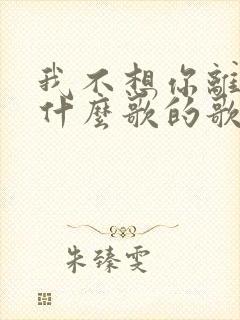 我不想你離
什麼歌的歌
朱臻雯